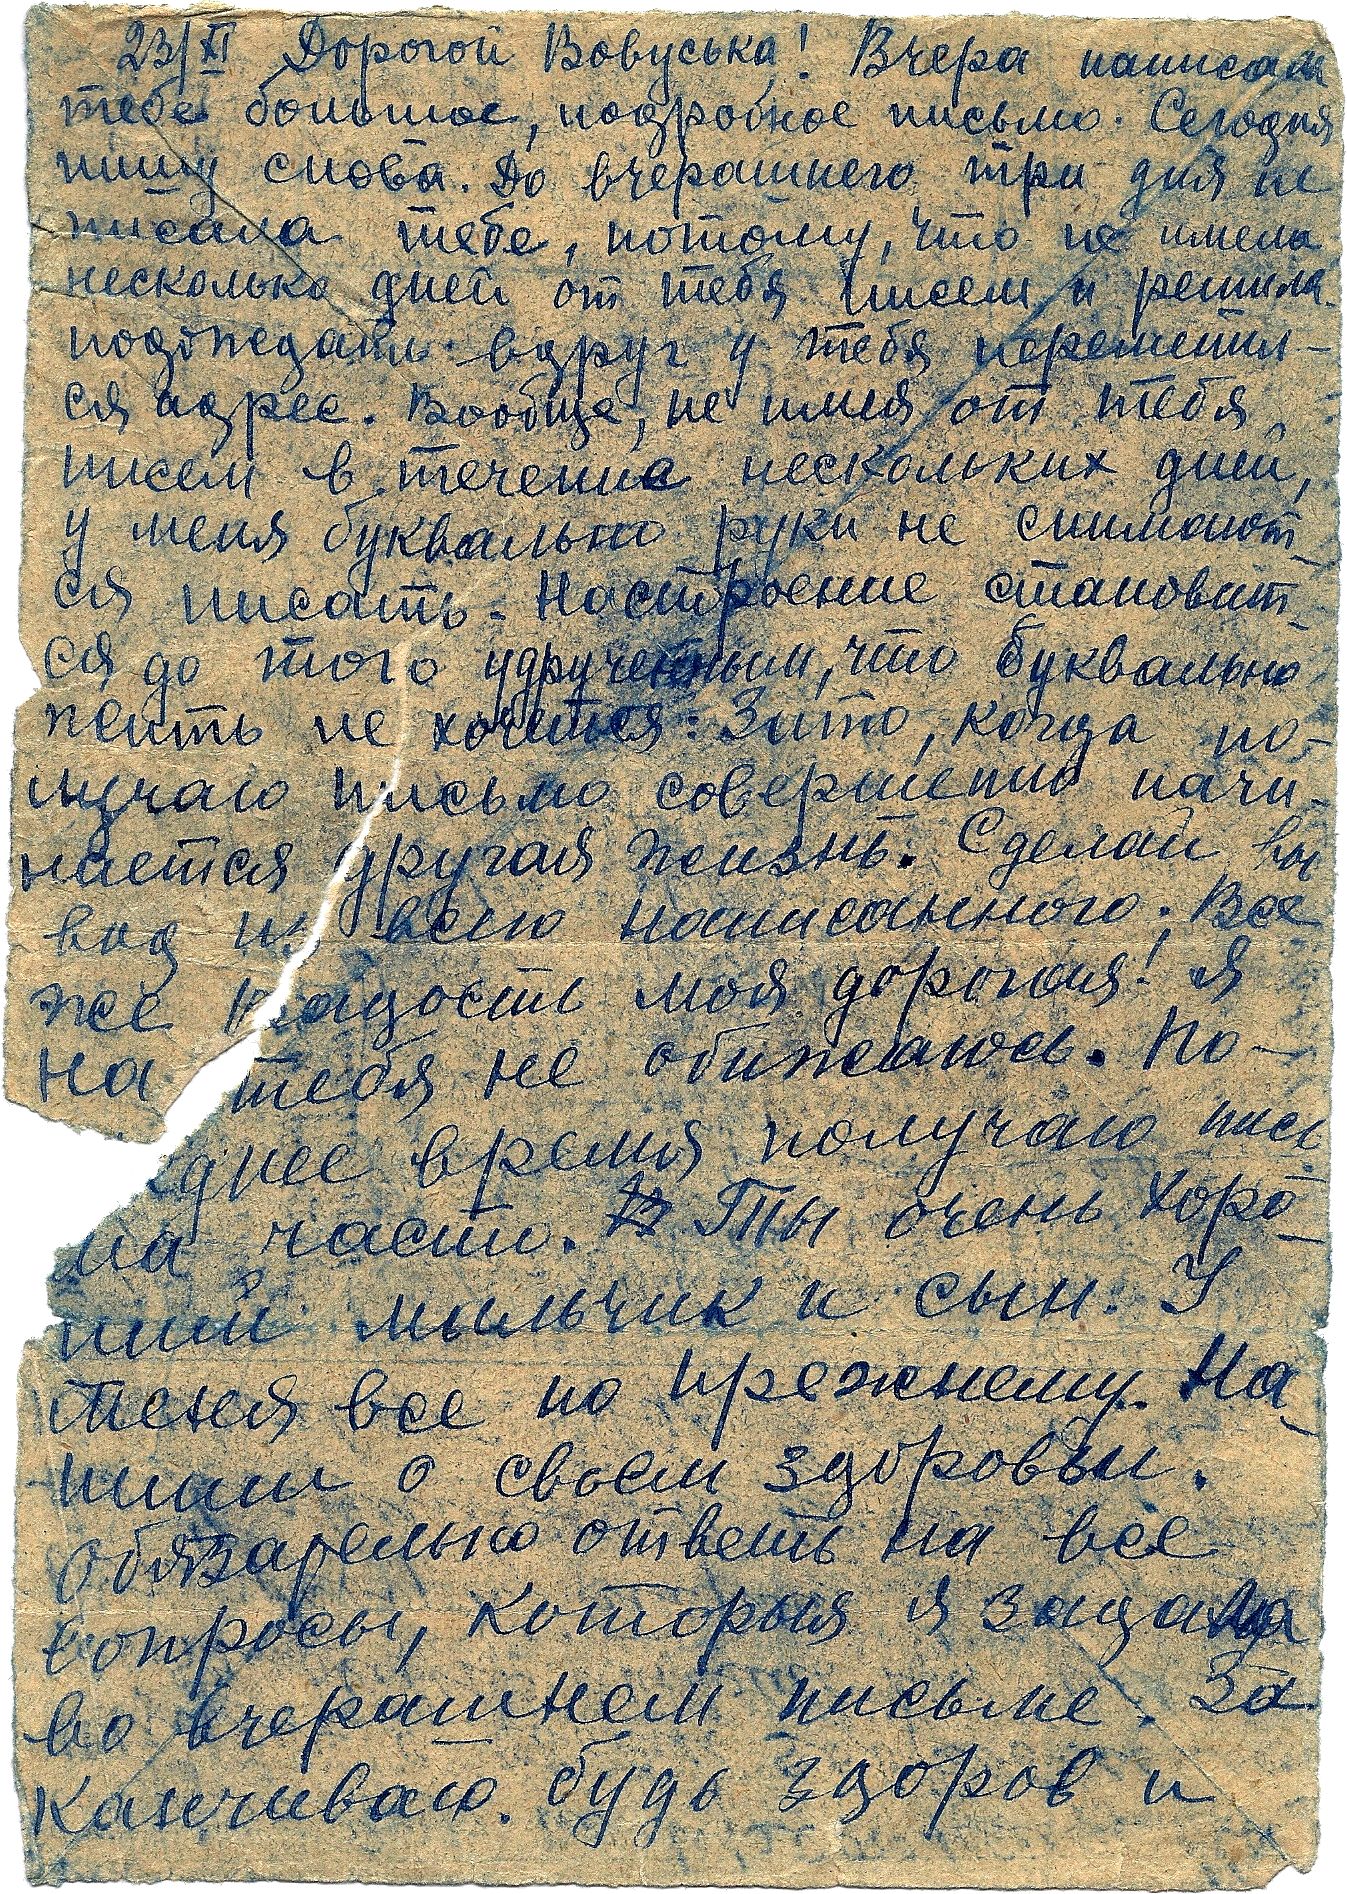 23/XI Дорогой Вовуська! Вчера написала
тебе большое, подробное письмо. Сегодня
пишу снова. До вчерашнего три дня не
писала тебе, потому, что не имела
несколько дней от тебя писем и решила
подождать вдруг у тебя переменил-
ся адрес. Вообще, не имея от тебя
писем в течении нескольких дней,
у меня буквально руки не снимают-
ся писать. Настроение становит-
ся до того удрученным, что буквально
жить не хочеться. Зато, когда по-
лучаю письмо совершенно начи-
нается другая жизнь. Сделай вы
вод из всего написанного. Все
же радость моя дорогая! Я
на тебя не обижаюсь. По-
днее время получаю пись
ма часто. Ты очень хоро-
ший мальчик и сын. У
меня все по прежнему. На-
пиши о своем здоровьи.
Обязательно ответь на все
вопросы, которыя я задала
во вчерашнем письме. За
канчиваю. будь здоров и